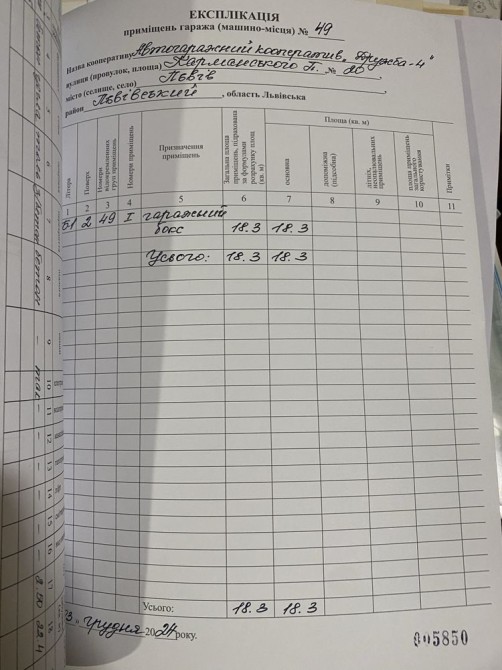 ЕКСПЛІКАЦІЯ
приміщень гаража (машино-місця) № 49
Назва кооперативу Автогаражний кооператив „Дружба-4"
вулиця (провулок, площа) Карманського П. № 20
місто (селище, село) Львів
район Львівський, область Львівська
Літера
Поверх
Номери відокремлених груп приміщень
Номери приміщень
Призначення приміщень
Загальна площа приміщень, підрахована за формулами розрахунку площ (кв. м)
Площа (кв. м)
основна
допоміжна (підсобна)
літніх, неопалювальних приміщень
площа приміщень загального користування
Примітки
1 2 3 4 5 6 7 8 9 10 11
Б1 2 49 I гаражний
бокс 18.3 18.3
Усього: 18.3 18.3
Усього: 18.3 18.3
грудня 2024 року.
005850